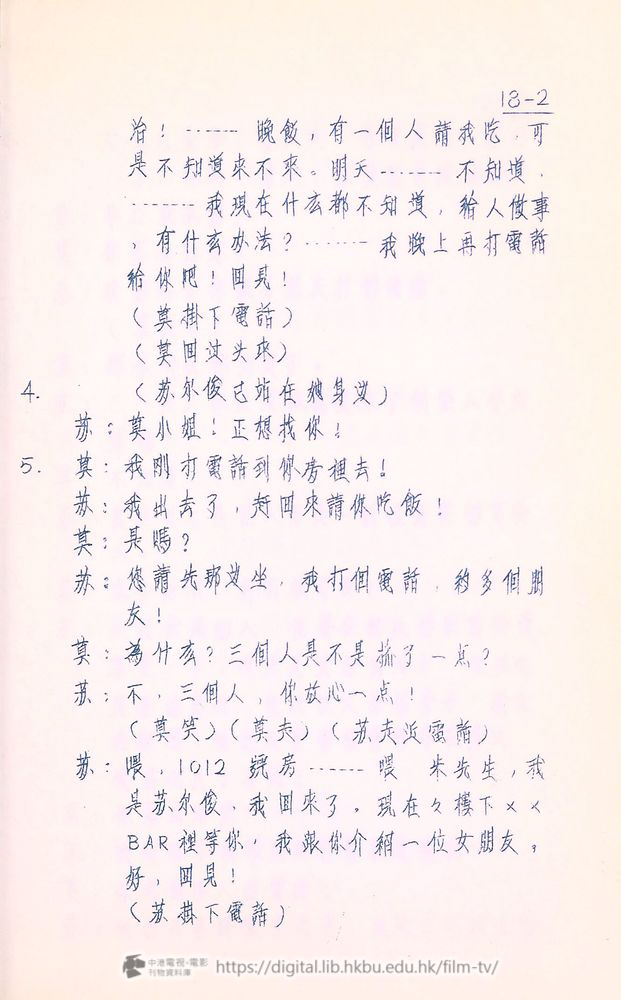 18-2
治！……晚飯，有一個人請我吃，可
是不知道來不來。明天……不知道，
……我現在什么都不知道，給人做事
，有什么办法？……我晚上再打電話
給你吧！回見！
（莫掛下電話）
（莫回过头來）
4. （苏尔俊已站在她身边）
苏：莫小姐！正想找你！
5. 莫：我刚打電話到你房裡去！
苏：我出去了，赶回來請你吃飯！
莫：是嗎？
苏：您請先那边坐，我打個電話，約多個朋
友！
莫：為什么？三個人是不是挤了一点？
苏：不，三個人，你放心一点！
（莫笑）（莫走）（苏走近電話）
苏：喂，1012 號房……喂 朱先生，我
是苏尔俊，我回來了。現在々樓下××
BAR裡等你，我跟你介紹一位女朋友，
好，回見！
（苏掛下電話）
中港電視·電影
刊物資料庫
https://digital.lib.hkbu.edu.hk/film-tv/